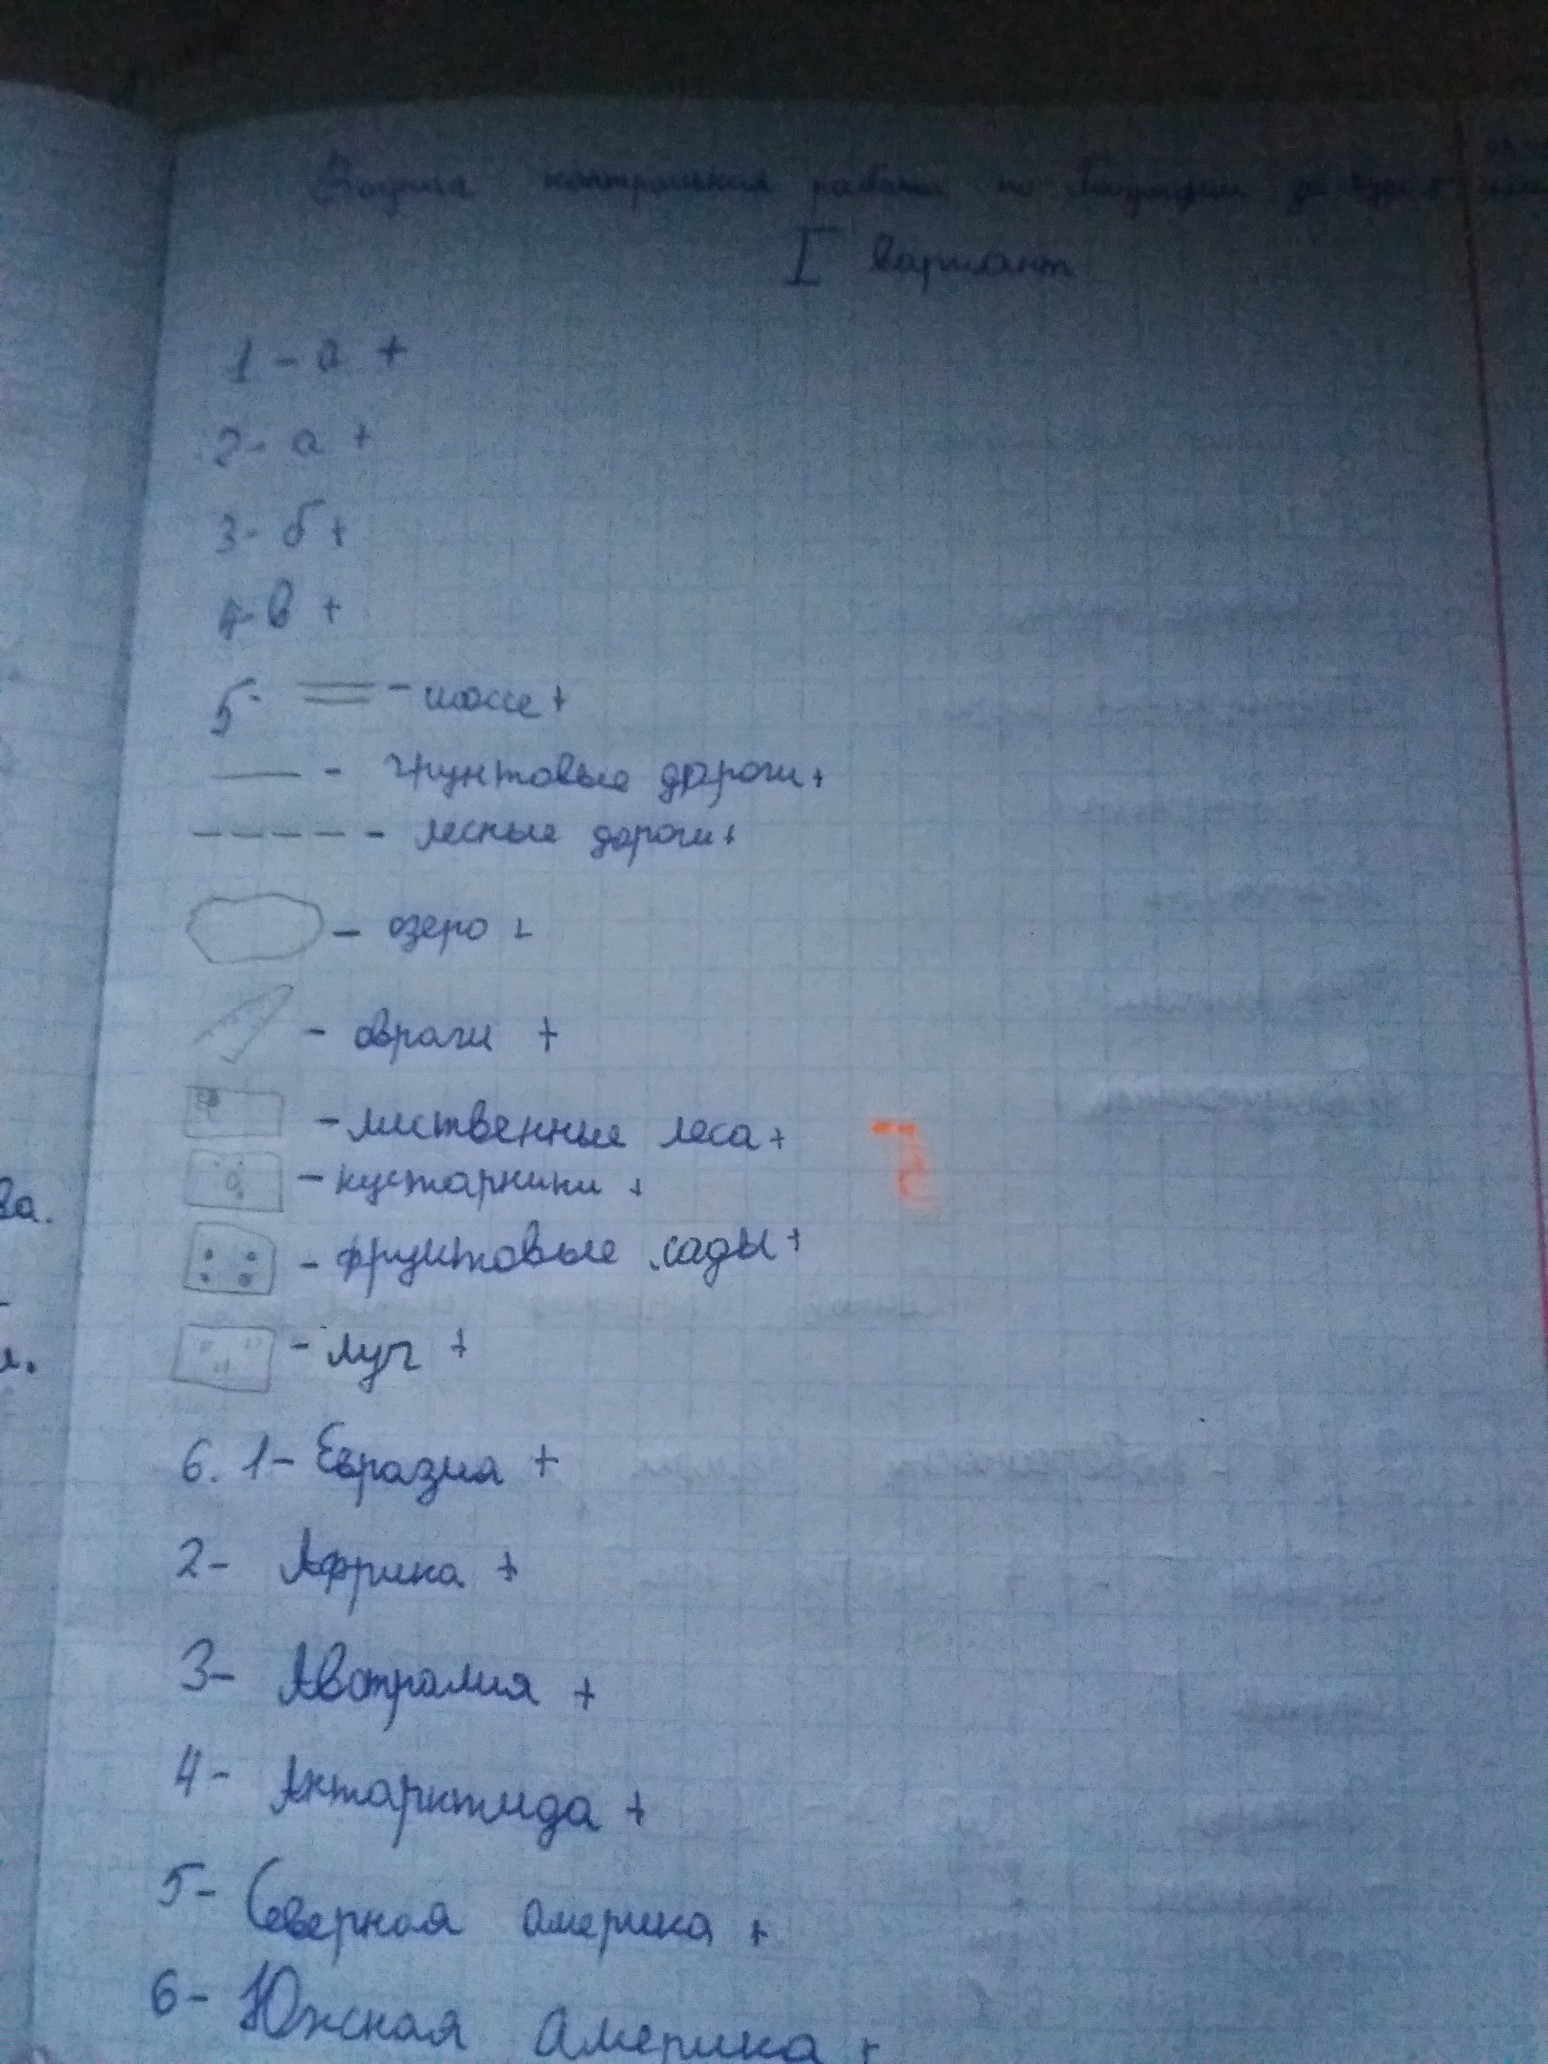 контрольная работа по Географии за курс 5
I вариант
1 - а +
2 - а +
3 - б +
4 - в +
5 - - шоссе +
- грунтовые дороги +
- лесные дороги +
- озеро +
- овраги +
- лиственные леса +
- кустарники +
- фруктовые сады +
- луг +
6. 1 - Евразия +
2 - Африка +
3 - Австралия +
4 - Антарктида +
5 - Северная америка +
6 - Южная америка +
ва.